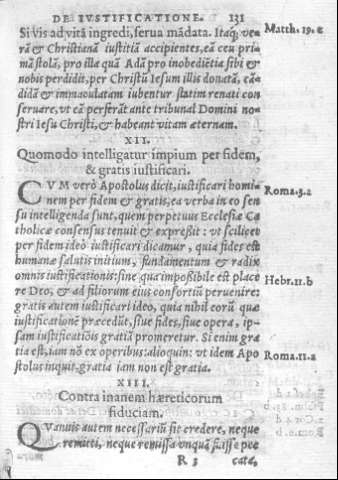 DE IVSTIFICATIONE. 131
Si vis ad vitā ingredi, serua mādata. Itaq; ve- Matth. 19. c
rā & Christianā iustitiā accipientes, eā ceu pri-
mā stolā, pro illa quā Adā pro inobediētia sibi &
nobis perdidit, per Christū Iesum illis donatā, cā-
didā & immaculatam iubentur statim renati con
seruare, vt eā perferāt ante tribunal Domini no-
stri Iesu Christi, & habeant vitam æternam.
XII.
Quomodo intelligatur impium per fidem,
& gratis iustificari.
CVM verò Apostolus dicit, iustificari homi- Roma. 3. a
nem per fidem & gratis, ea verba in eo sen
su intelligenda sunt, quem perpetuus Ecclesiæ Ca
tholicæ consensus tenuit & expreßit: vt scilicet
per fidem ideò iustificari dicamur, quia fides est
humanæ salutis initium, fundamentum & radix
omnis iustificationis: sine qua impoßibile est place Hebr. 11. b
re Deo, & ad filiorum eius consortiū peruenire:
gratis autem iustificari ideo, quia nihil eorū quæ
iustificationē præcedūt, siue fides, siue opera, ip-
sam iustificatiōis gratiā promeretur. Si enim gra
tia est, iam nō ex operibus: alioquin: vt idem Apo Roma. 11. a
stolus inquit, gratia iam non est gratia.
XIII.
Contra inanem hæreticorum
fiduciam.
QVanuis autem necessariū sit credere, neque
remitti, neque remissa vnquā fuisse pec
R 3 cata,